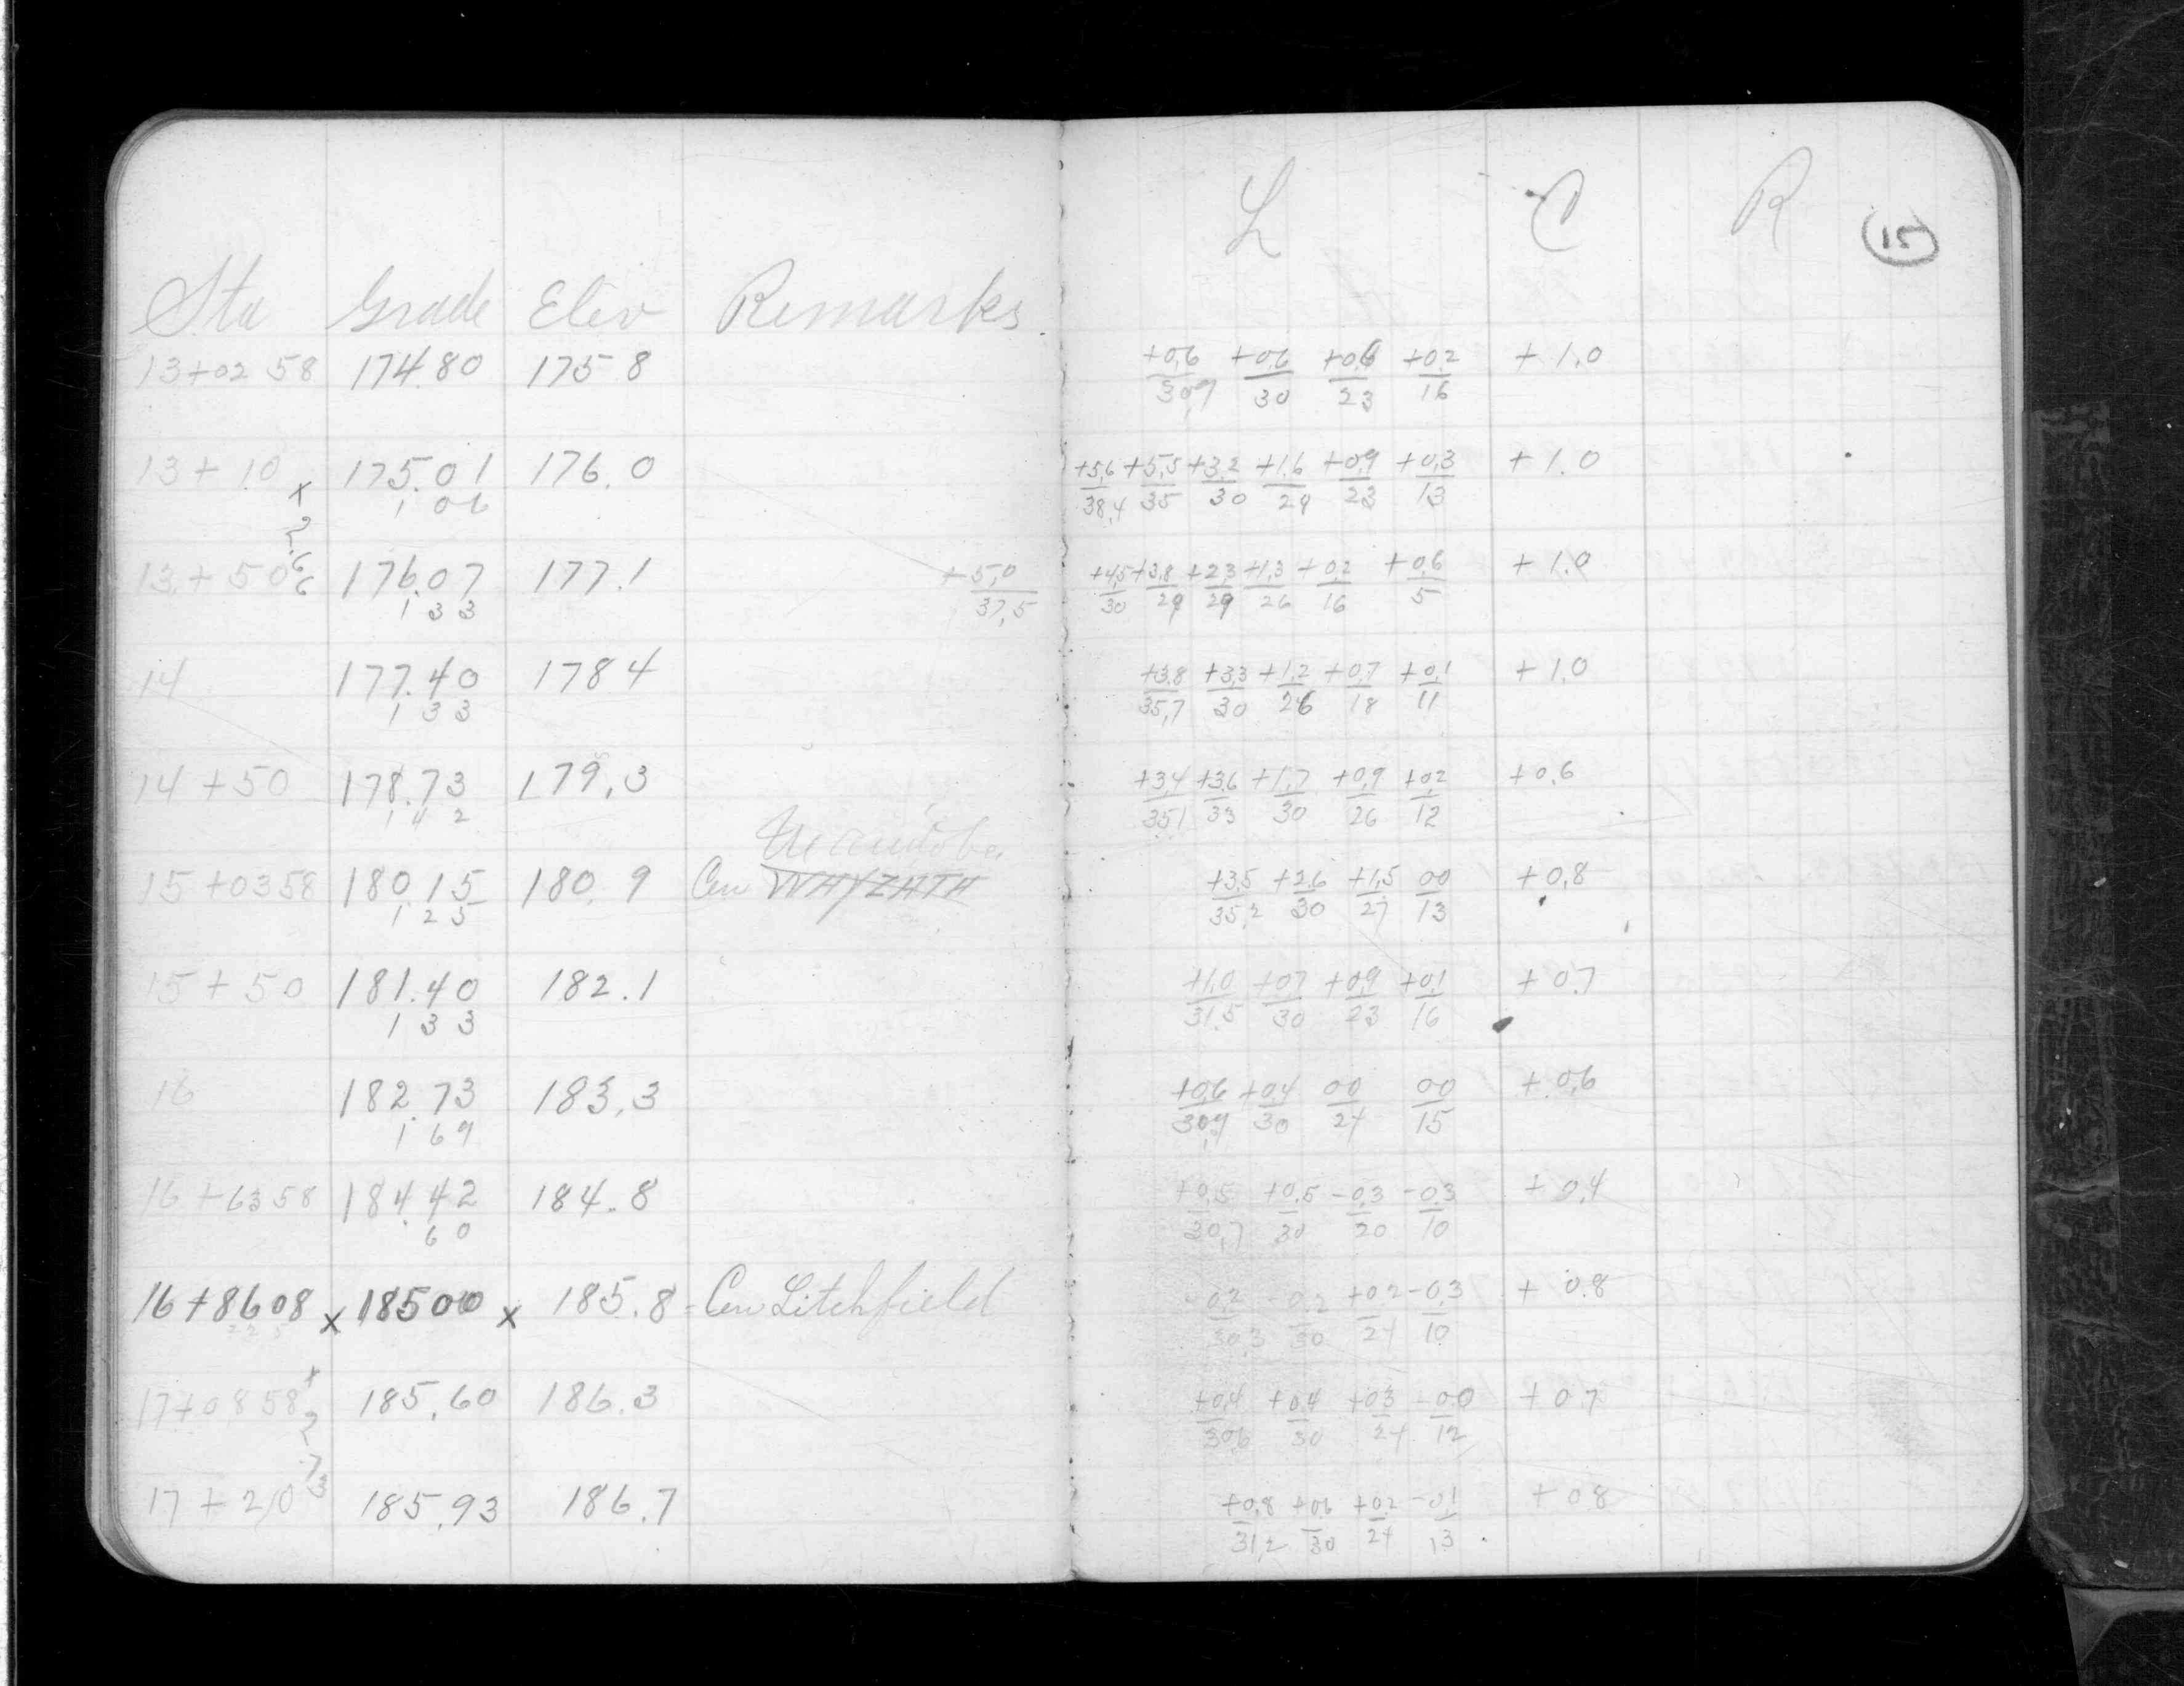 L C R (15)
Sta Grade Elev Remarks
13+02 58 174.80 175 8 +0.6/30.9 +0.6/30 +0.6/23 +0.2/16 +1.0
13+10 175.01 176.0 +5.6/38.4 +5.5/35 +3.2/30 +1.6/29 +0.9/23 +0.3/13 +1.0
x 1 06
2.66
13+50 176.07 177.1 +5.0/37.5 +4.5/30 +3.8/29 +2.3/29 +1.3/26 +0.2/16 +0.6/5 +1.0
1 33
14 177.40 178 4 +3.8/35.7 +3.3/30 +1.2/26 +0.7/18 +0.1/11 +1.0
1 33
14+50 178.73 179.3 +3.4/35 1 +3.6/33 +1.7/30 +0.9/26 +0.2/12 +0.6
1 4 2
15+03 58 180.15 180.9 Cen WAYZATA +3.5/35.2 +2.6/30 +1.5/27 00/13 +0.8
1 25
15+50 181.40 182.1 +1.0/31.5 +07/30 +0.9/23 +0.1/16 +0.7
1 33
16 182.73 183.3 +0.6/30.9 +0.4/30 00/24 00/15 +0.6
1 69
16+63 58 184.42 184.8 +0.5/30.7 +0.5/30 -0.3/20 -0.3/10 +0.4
60
16+86 08 x 185 00 x 185.8 = Cen Litchfield -0.2/30.3 -0.2/30 +0.2/24 -0.3/10 +0.8
22 5
17+08 58 185.60 186.3 +0.4/30.6 +0.4/30 +0.3/24 -0.0/12 +0.7
x 2.73
17+20 185.93 186.7 +0.8/31.2 +0.6/30 +0.2/24 -0.1/13 +0 8